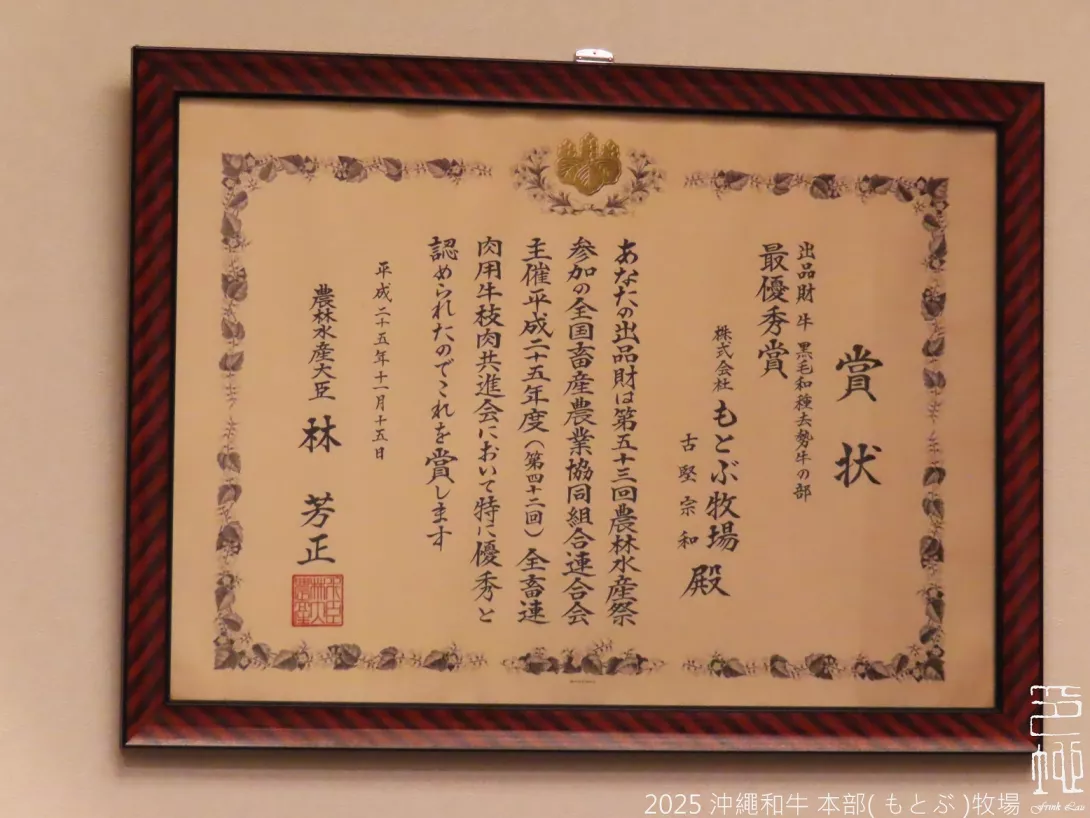 賞状
出品財 牛 黒毛和種去勢牛の部
最優秀賞
株式会社 もとぶ牧場
古堅宗和 殿
あなたの出品財は第五十三回農林水産祭
参加の全国畜産農業協同組合連合会
主催平成二十五年度(第四十二回)全畜連
肉用牛枝肉共進会において特に優秀と
認められたのでこれを賞します
平成二十五年十一月十五日
農林水産大臣 林 芳正
2025 沖繩和牛 本部( もとぶ )牧場
Frnk Lau